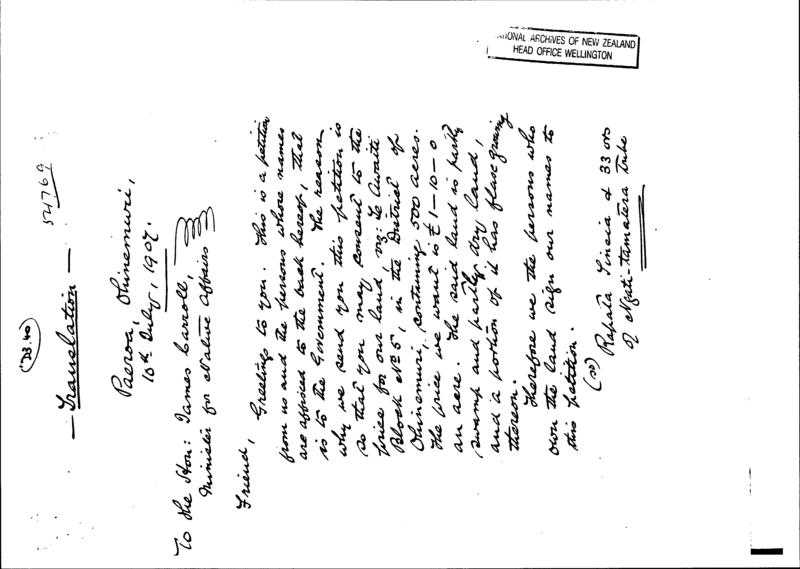 NATIONAL ARCHIVES OF NEW ZEALAND
HEAD OFFICE WELLINGTON
— Translation —
Paeroa, Ohinemuri,
10th July, 1907.
To the Hon: James Carroll,
Minister for Native Affairs
Friend,
Greetings to you. This is a petition
from us and the persons whose names
are affixed to the back hereof, that
is to the Government. The reason
why we send you this petition is
so that you may consent to the
price for our land, viz: Te Awaiti
Block No 5, in the District of
Ohinemuri, containing 500 acres.
The price we want is £1-10-0
an acre. The said land is partly
swamp and partly dry land,
and a portion of it has flax growing
thereon.
Therefore we the persons who
own the land sign our names to
this petition.
(sd) Rapata & 33 ors
of Ngati-tamatera tribe